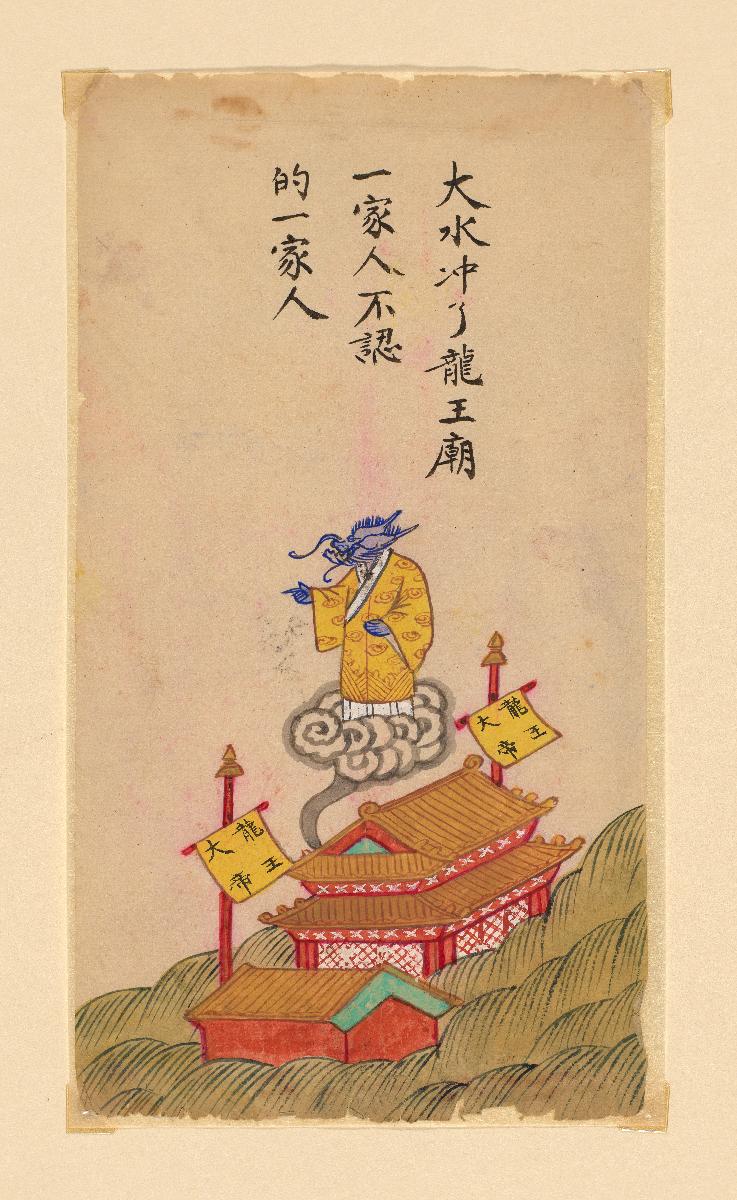 大水冲了龍王廟
一家人不認
的一家人
龍王
大帝
龍王
大帝